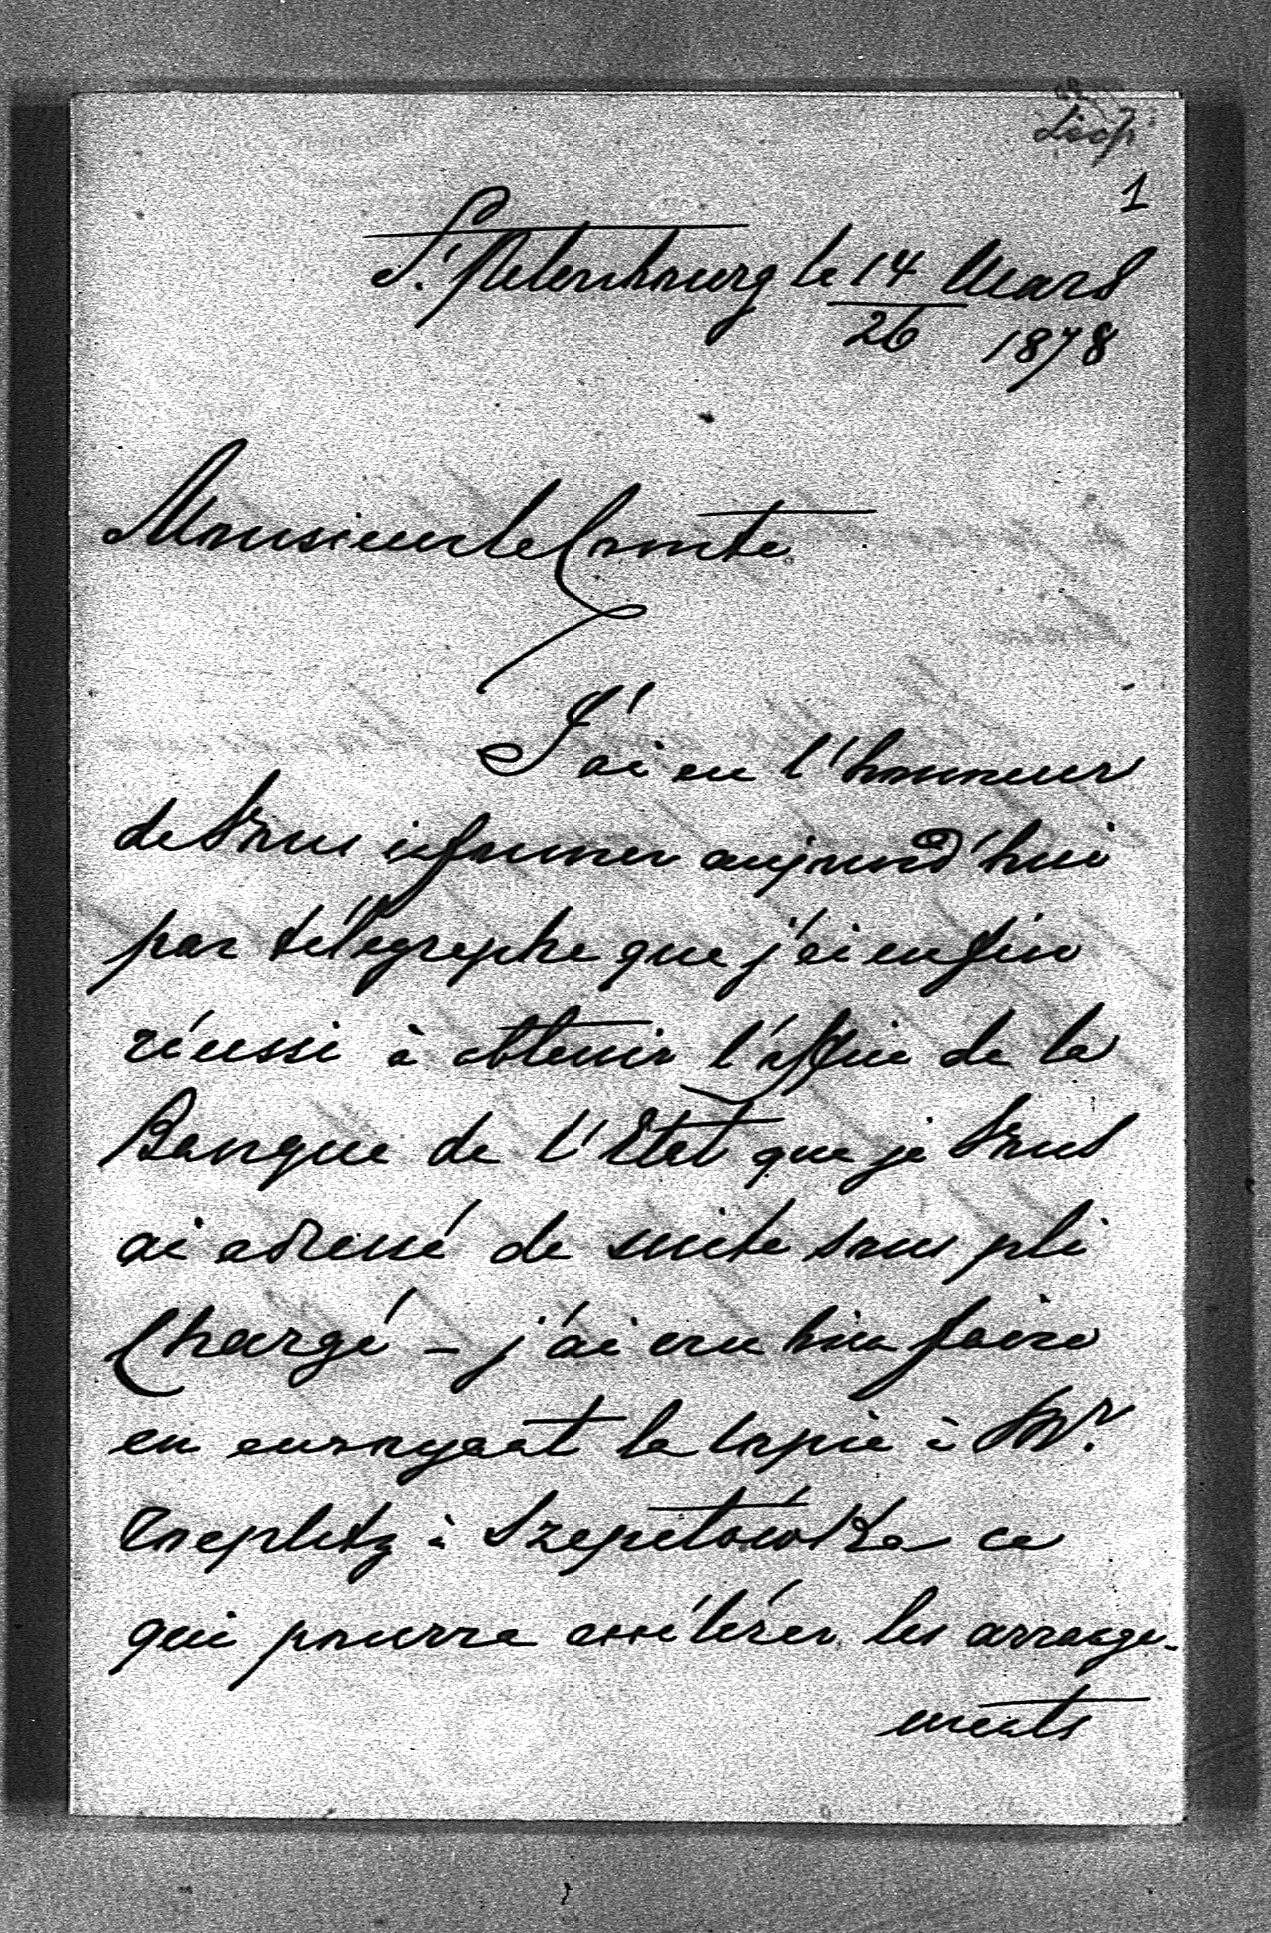 1
St. Petersbourg le 14 Mars
26 1878
Monsieur le Comte
J'ai eu l'honneur
de Vous informer aujourd'hui
par télégraphe que j'ai enfin
réussi à obtenir l'office de la
Banque de l'Etat que je Vous
ai adressé de suite sous pli
Chargé – j'ai cru bien faire
en envoyant la copie à Mr.
à Szepetówka ce
qui pourra accélérer les arrange-
ments